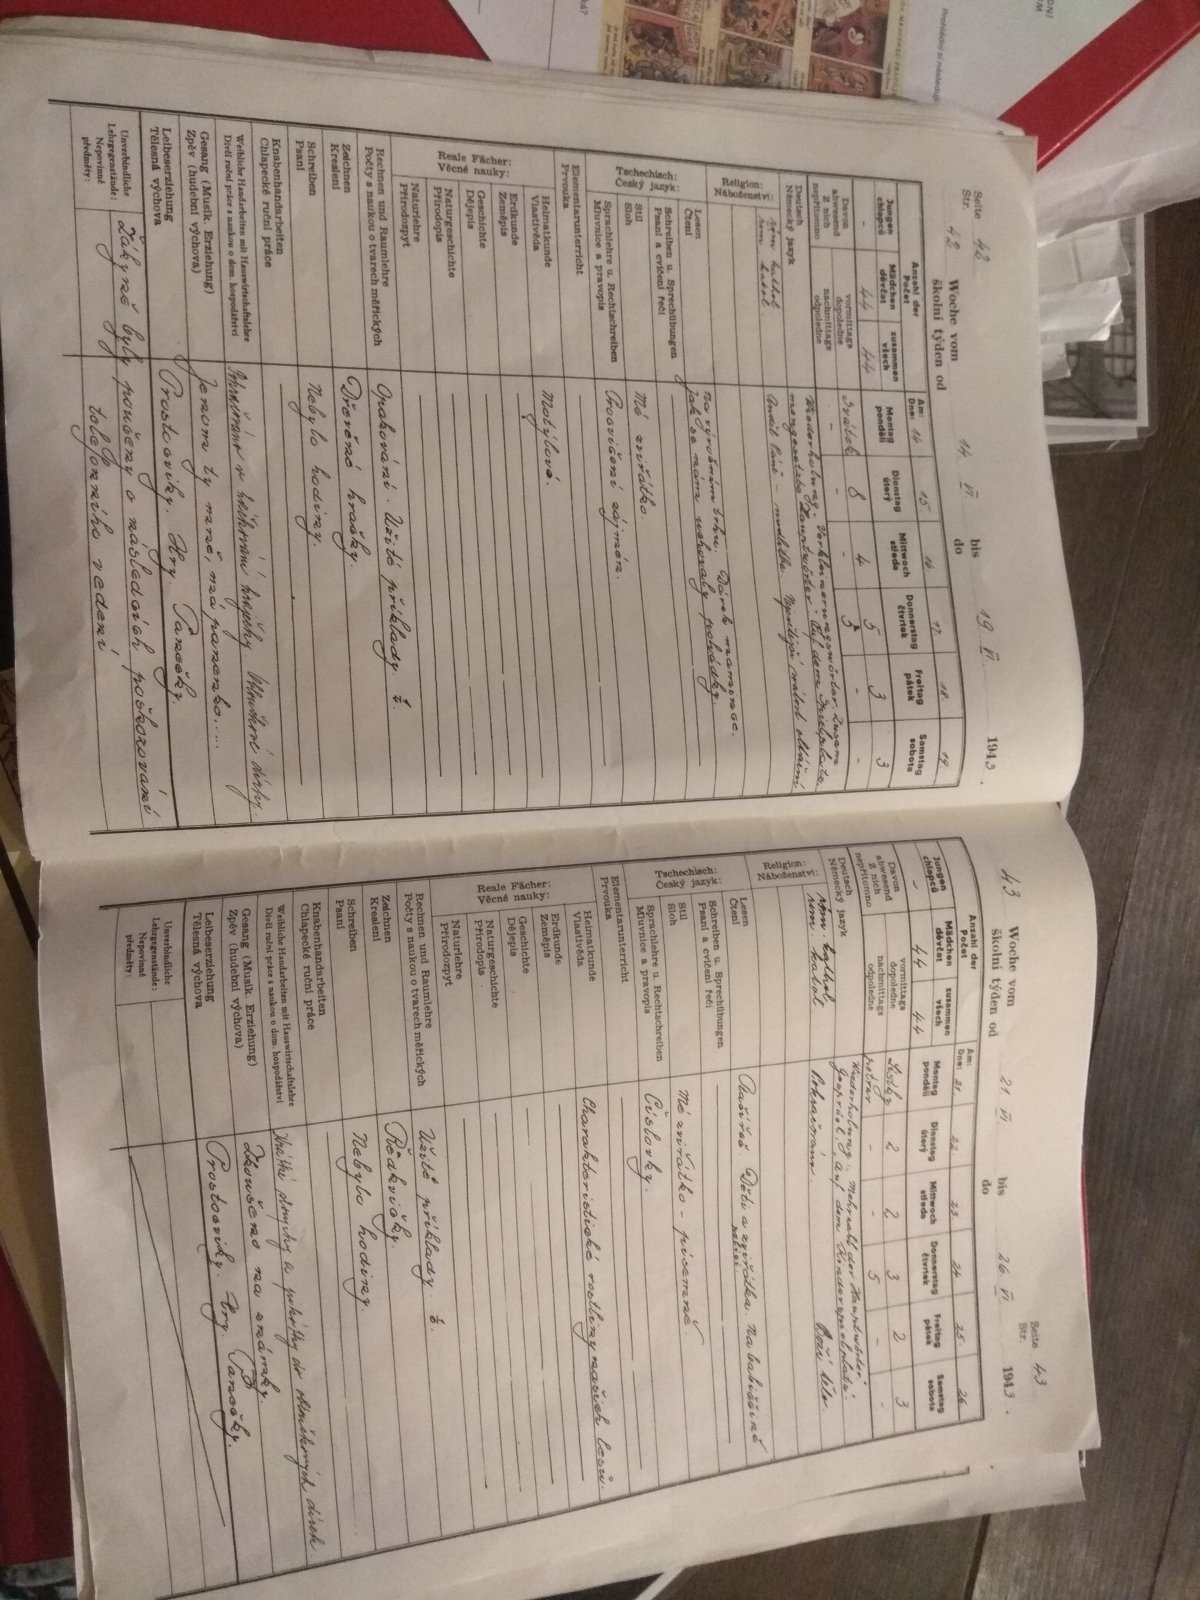 Seite 42
Str. 42
Woche vom 14 VI bis 19 VI 1943.
školní týden od do
Anzahl der
Počet
Am: Dne:
Jungen chlapců
Mädchen děvčat
zusammen všech
Montag pondělí 14.
Dienstag úterý 15.
Mittwoch středa 16.
Donnerstag čtvrtek 17.
Freitag pátek 18.
Samstag sobota 19.
- 44 44
Davon abwesend
Z nich nepřítomno
vormittags dopoledne svátek 8 4 5 3 3
nachmittags odpoledne - - - 3 - -
Deutsch
Německý jazyk
Wiederholung.
Hauptwörter.
Religion:
Náboženství:
řím. katol.
Tschechisch:
Český jazyk:
Lesen
Čtení
Na výročním trhu. Dárek mamince.
Jak se nám uchovaly pohádky.
Schreiben u. Sprechübungen
Psaní a cvičení řeči
Stil
Sloh
Mé zvířátko.
Sprachlehre u. Rechtschreiben
Mluvnice a pravopis
Procvičení zájmen.
Elementarunterricht
Prvouka
Reale Fächer:
Věcné nauky:
Heimatkunde
Vlastivěda
Motýlové.
Erdkunde
Zeměpis
Geschichte
Dějepis
Naturgeschichte
Přírodopis
Naturlehre
Přírodozpyt
Rechnen und Raumlehre
Počty s naukou o tvarech měřických
Opakování. Užité příklady.
Zeichnen
Kreslení
Dřevěné hračky.
Schreiben
Psaní
Nebylo hodiny.
Knabenhandarbeiten
Chlapecké ruční práce
Weibliche Handarbeiten mit Hauswirtschaftslehre
Dívčí ruční práce s naukou o dom. hospodářství
Gesang (Musik. Erziehung)
Zpěv (hudební výchova)
Jenom ty mně, má panenko.....
Leibeserziehung
Tělesná výchova
Prostocviky. Hry. Tanečky.
Unverbindliche Lehrgegenstände:
Nepovinné předměty:
Žákyně byly poučeny o následcích poškozování
telefonního vedení
Seite 43
Str.
43 Woche vom 21 VI bis 26 VI 1943.
školní týden od do
Anzahl der
Počet
Am: Dne:
Jungen chlapců
Mädchen děvčat
zusammen všech
Montag pondělí 21.
Dienstag úterý 22
Mittwoch středa 23.
Donnerstag čtvrtek 24.
Freitag pátek 25.
Samstag sobota 26.
- 44 44
Davon abwesend
Z nich nepřítomno
vormittags dopoledne 2 2 3 2 3
nachmittags odpoledne - - 5 - -
Deutsch
Německý jazyk
Wiederholung. Mehrzahl der Hauptwörter.
auf dem Kinderspielplatz.
Religion:
Náboženství:
řím. katol.
Pokračování. Boží tělo.
Tschechisch:
Český jazyk:
Lesen
Čtení
Děti a zvířátka. Na babiččině
Schreiben u. Sprechübungen
Psaní a cvičení řeči
Stil
Sloh
Mé zvířátko - písemně.
Sprachlehre u. Rechtschreiben
Mluvnice a pravopis
Číslovky.
Elementarunterricht
Prvouka
Reale Fächer:
Věcné nauky:
Heimatkunde
Vlastivěda
Charakteristické rostliny našich lesů.
Erdkunde
Zeměpis
Geschichte
Dějepis
Naturgeschichte
Přírodopis
Naturlehre
Přírodozpyt
Rechnen und Raumlehre
Počty s naukou o tvarech měřických
Užité příklady.
Zeichnen
Kreslení
Ředkvičky.
Schreiben
Psaní
Nebylo hodiny.
Knabenhandarbeiten
Chlapecké ruční práce
Weibliche Handarbeiten mit Hauswirtschaftslehre
Dívčí ruční práce s naukou o dom. hospodářství
Gesang (Musik. Erziehung)
Zpěv (hudební výchova)
Zkoušeno na známky.
Leibeserziehung
Tělesná výchova
Prostocviky. Hry. Tanečky.
Unverbindliche Lehrgegenstände:
Nepovinné předměty: